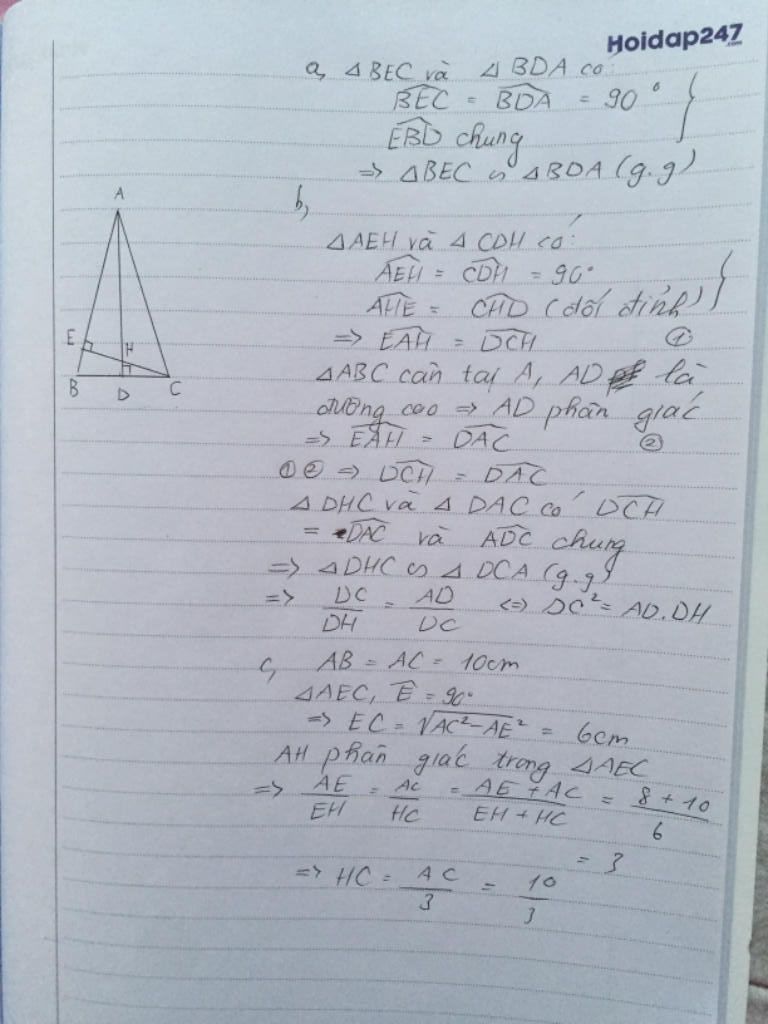 Hoidap247
.com
a, △BEC và △BDA có:
∠BEC = ∠BDA = 90°
∠EBD chung
=> △BEC ∽ △BDA (g.g)
b,
△AEH và △CDH có:
∠AEH = ∠CDH = 90°
∠AHE = ∠CHD (đối đỉnh)
=> ∠EAH = ∠DCH ①
△ABC cân tại A, AD là
đường cao => AD phân giác
=> ∠EAH = ∠DAC ②
①② => ∠DCH = ∠DAC
△DHC và △DAC có ∠DCH
= ∠DAC và ∠ADC chung
=> △DHC ∽ △DCA (g.g)
=> DC/DH = AD/DC <=> DC² = AD.DH
c, AB = AC = 10cm
△AEC, Ê = 90°
=> EC = √AC²-AE² = 6cm
AH phân giác trong △AEC
=> AE/EH = AC/HC = AE + AC/EH + HC = 8 + 10/6
= 3
=> HC = AC/3 = 10/3
A
E
H
B
D
C